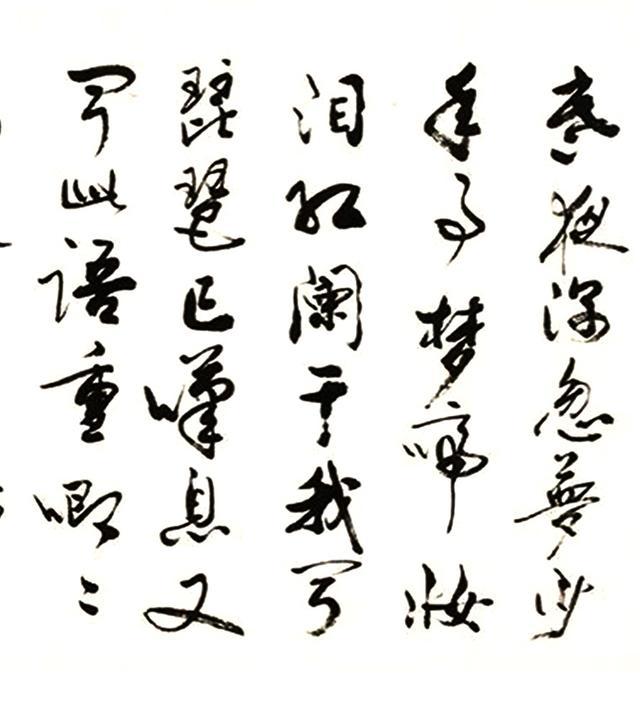 意夜深忽梦少
年事梦啼妆
泪红阑干我闻
琵琶已叹息又
闻此语重唧々